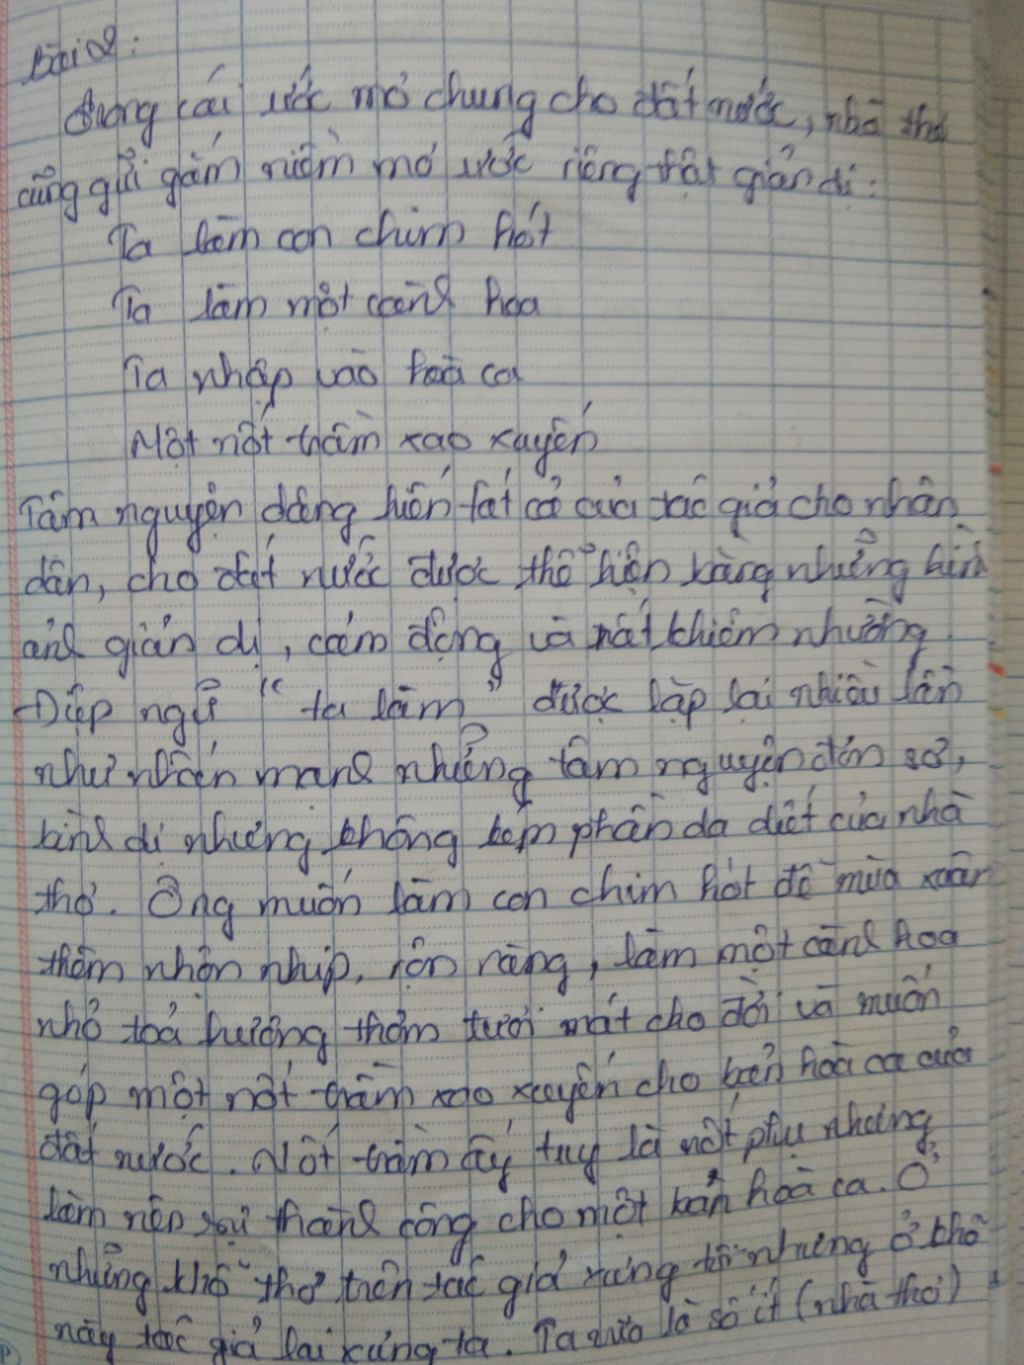 Bài 2:
Trong cái ước mơ chung cho đất nước, nhà thơ
cũng gửi gắm niềm mơ ước riêng thật giản dị:
Ta làm con chim hót
Ta làm một cành hoa
Ta nhập vào hoà ca
Một nốt trầm xao xuyến
Tâm nguyện dâng hiến tất cả của tác giả cho nhân
dân, cho đất nước được thể hiện bằng những hình
ảnh giản dị, cảm động và rất khiêm nhường.
Điệp ngữ "ta làm" được lặp lại nhiều lần
như nhấn mạnh những tâm nguyện đơn sơ,
bình dị nhưng không kém phần da diết của nhà
thơ. Ông muốn làm con chim hót để mùa xuân
thêm nhộn nhịp, rộn ràng, làm một cành hoa
nhỏ toả hương thơm tươi mát cho đời và muốn
góp một nốt trầm xao xuyến cho bản hoà ca của
đất nước. Nốt trầm ấy tuy là nốt phụ nhưng
làm nên sự thành công cho một bản hoà ca. Ở
những khổ thơ trên tác giả xưng tôi nhưng ở khổ
này tác giả lại xưng ta. Ta vừa là số ít (nhà thơ)